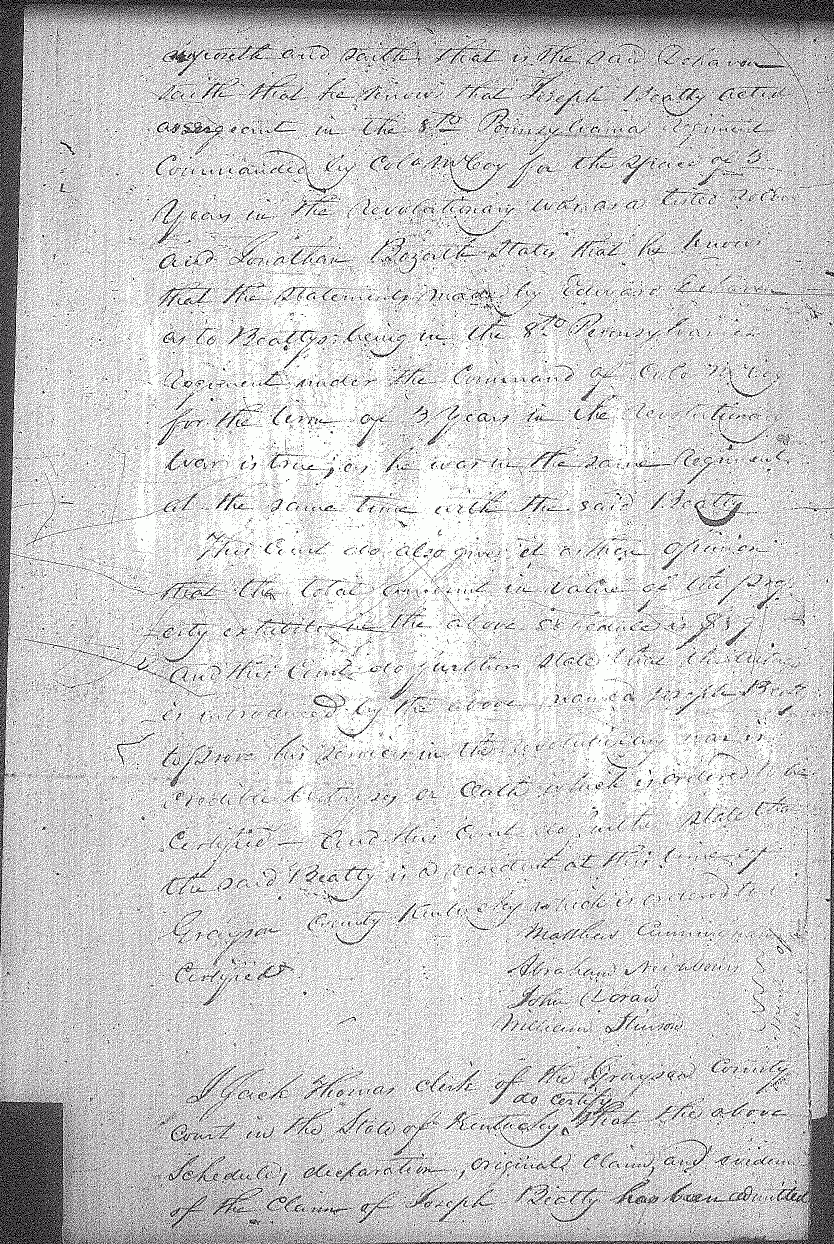 and saith that is the said Dehaven
saith that he knows that Joseph Beatty acted
as sergeant in the 8th Pennsylvania Regiment
Commanded by Colo McCoy for the space of 3
Years in the Revolutionary war as a listed
and Jonathan Bozarth States that he knows
that the statements made by Edward Dehaven
as to Beattys being in the 8th Pennsylvania
Regiment under the Command of Colo McCoy
for the term of 3 Years in the Revolutionary
War is true, as he was in the same Regiment
at the same time with the said Beatty
This Court do also give it as their opinion
that the total amount in value of the prop
erty exhibited in the above schedule is
And this Court do further state that the
is introduced by the above named Joseph Beatty
to prove his services in the revolutionary war is
credible on Oath which is ordered to be
Certified - And this Court do further state that
the said Beatty is a resident at this time of
Grayson County Kentucky which is ordered to be
Certified
Matthew Cunningham
Abraham
John
William Stinson
I Jack Thomas clerk of the Grayson County
do certify
Court in the State of Kentucky that the above
Schedule, declaration, original Claim, and evidence
of the Claim of Joseph Beatty has been admitted